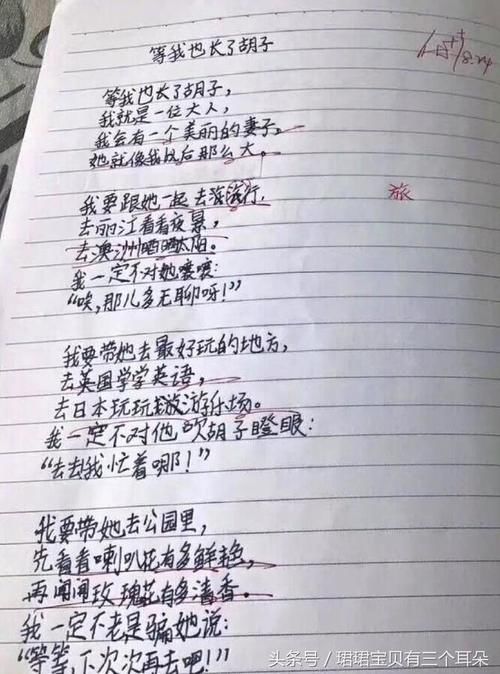 等我也长了胡子
等我也长了胡子，
我就是一位大人，
我会有一个美丽的妻子。
她就像我以后那么大。
我要跟她一起去旅行，
旅
去丽江看看夜景，
去澳洲晒晒太阳。
我一定不对她嚷嚷：
“唉，那儿多无聊呀！”
我要带她去最好玩的地方，
去英国学学英语，
去日本玩玩游乐场。
我一定不对他吹胡子瞪眼：
“去去我忙着哪！”
我要带她去公园里，
先看看喇叭花有多鲜艳，
再闻闻玫瑰花有多清香。
我一定不老是骗她说：
“等等，下次次再去吧！”
头条号 / 珺珺宝贝有三个耳朵